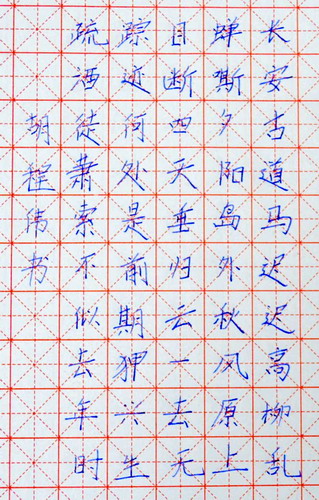 长安古道马迟迟高柳乱
蝉嘶夕阳岛外秋风原上
目断四天垂归云一去无
踪迹何处是前期狎兴生
疏酒徒萧索不似去年时
胡程伟书